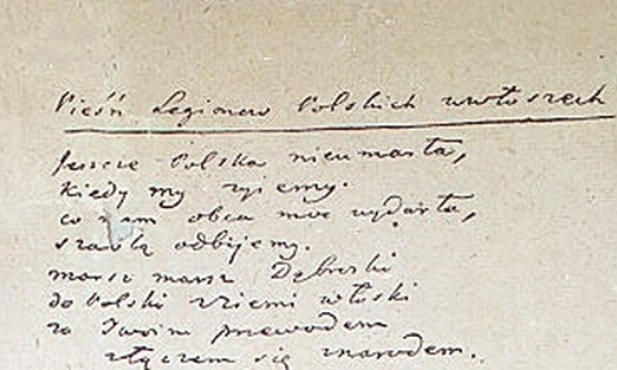 Pieśń Legionow Polskich wewłoszech
Jeszcze Polska nieumarła,
kiedy my żyiemy.
co nam obca moc wydarła,
szablą odbijemy.
marsz marsz Dąbroski
do Polski z ziemi włoski
za Twoim przewodem
złączem się znarodem.